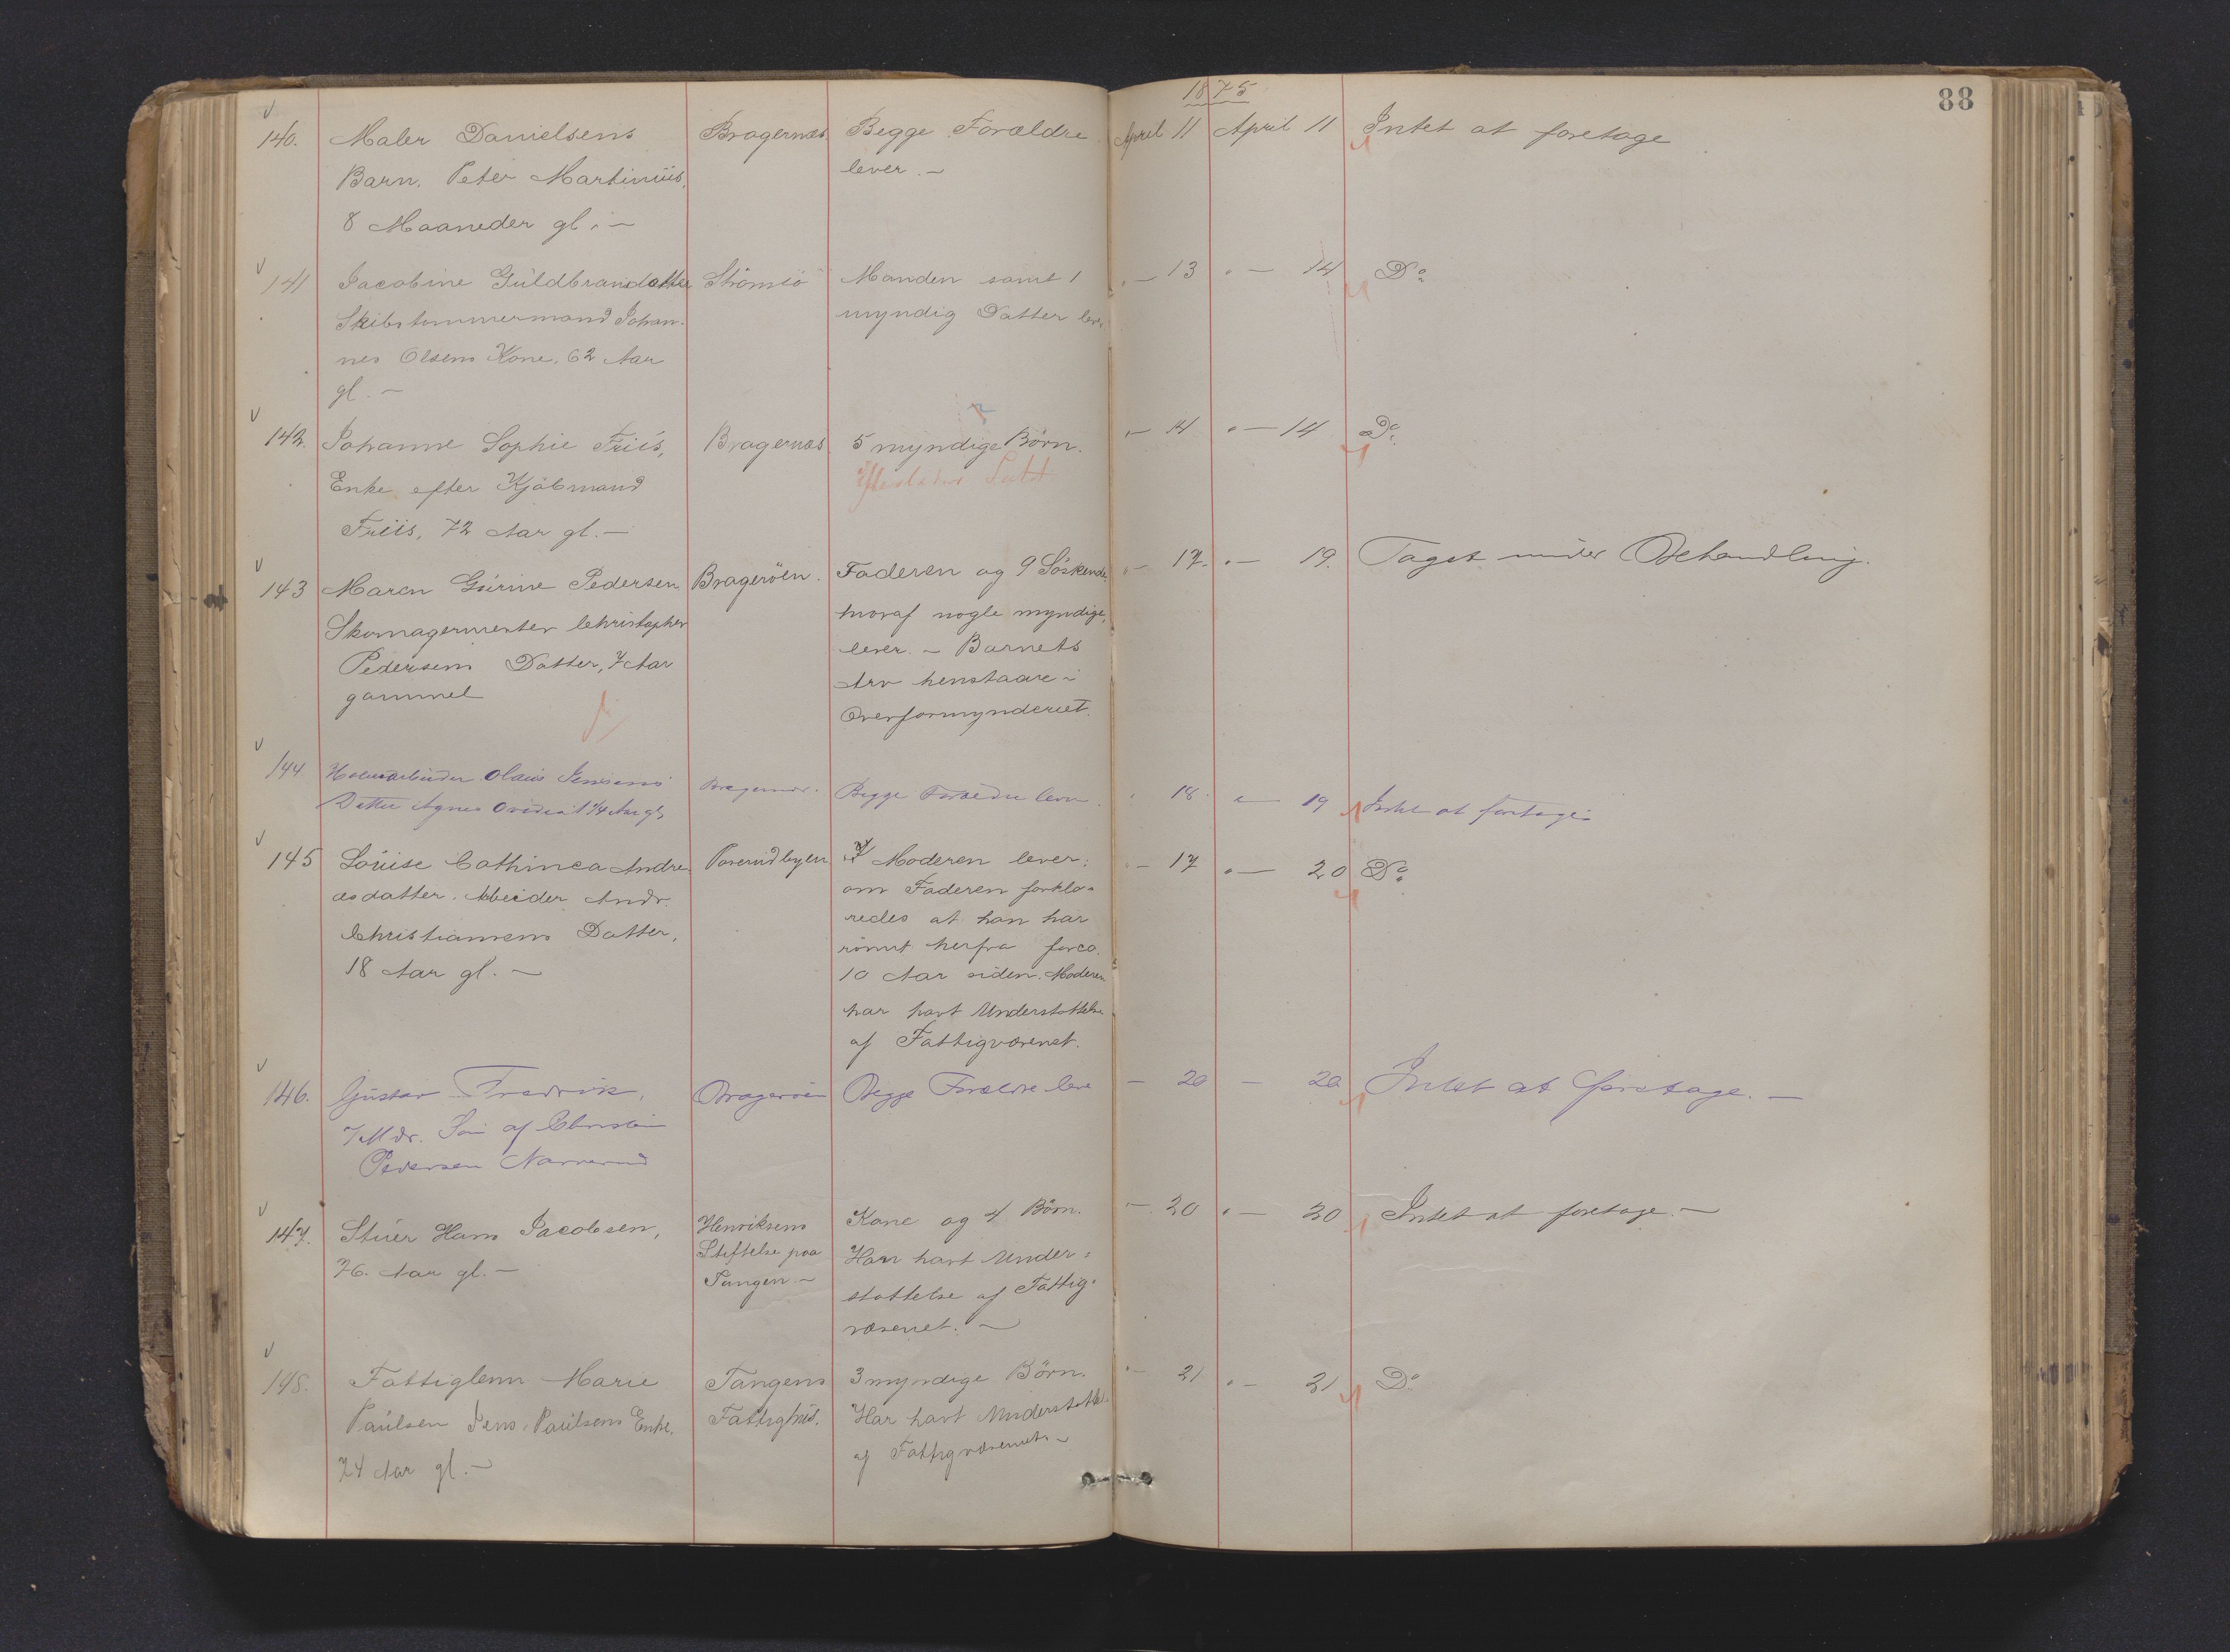 1875
88
140. Maler Danielsens Bragernæs Begge Forældre April 11 April 11 Intet at foretage
Barn. Peter Martinius, lever. –
8 Maaneder gl. –
141 Jacobine Guldbrandsdatter Strömsö Manden samt 1 " – 13 " – 14 Do
Skibstømmermand Johan- myndig Datter lever
nes Olsens Kone, 62 Aar
gl. –
142. Johanne Sophie Friis, Bragernæs 5 myndige Börn. " – 14 " – 14 Do
Enke efter Kjöbmand
Friis, 72 Aar gl. –
143 Maren Gurine Pedersen Bragerøen. Faderen og 9 Söskende " – 17. " – 19. Taget under Behandling.
Skomagermester Christopher hvoraf nogle myndige,
Pedersens Datter, 7 Aar lever. – Barnets
gammel Arv henstaar i
Overformynderiet.
144 Olaus Jensens Begge Forældre lever. " 18. " – 19 Intet at foretage
Datter Agnes Ovidia 1 1/4 Aar gl.
145 Louise Cathinca Andre- Moderen lever; " – 17 " – 20 Do
asdatter. Arbeider Andr. om Faderen forkla-
Christiansens Datter, redes at han har
18 Aar gl. – römt herfra for ca.
10 Aar siden. Moderen
har havt Understöttelse
af Fattigvæsenet.
146. Gustav Fredrik, Bragerøen Begge Forældre leve – 20 – 20 Intet at foretage. –
7 Mdr. Søn af Christian
Pedersen Narverud
147. Stuer Hans Jacobsen, Henriksens Kone og 4 Börn. " – 20 " – 20 Intet at foretage. –
76. Aar gl. – Stiftelse paa Han havt Under-
Tangen. – støttelse af Fattig-
væsenet. –
148. Fattiglem Marie Tangens 3 myndige Börn. " – 21 " – 21 Do
Paulsen Jens Paulsens Enke, Fattighus. Har havt Understöttelse
74 Aar gl. – af Fattigvæsenet. –